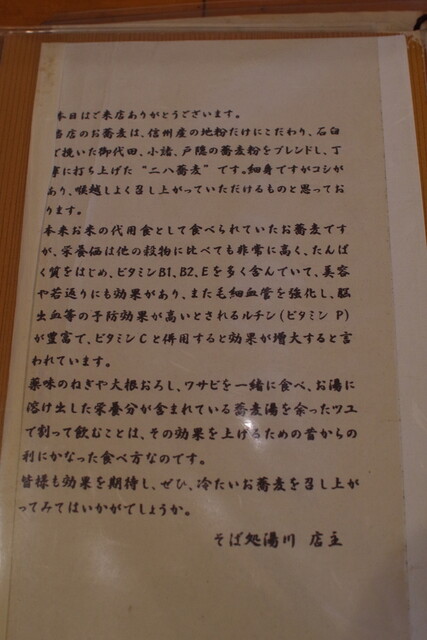 本日はご来店ありがとうございます。
当店のお蕎麦は、信州産の地粉だけにこだわり、石臼
で挽いた御代田、小諸、戸隠の蕎麦粉をブレンドし、丁
寧に打ち上げた“二八蕎麦”です。細身ですがコシが
あり、喉越しよく召し上がっていただけるものと思ってお
ります。
本来お米の代用食として食べられていたお蕎麦です
が、栄養価は他の穀物に比べても非常に高く、たんぱ
く質をはじめ、ビタミンB1、B2、Eを多く含んでいて、美容
や若返りにも効果があり、また毛細血管を強化し、脳
出血等の予防効果が高いとされるルチン(ビタミン P)
が豊富で、ビタミンCと併用すると効果が増大すると言
われています。
薬味のねぎや大根おろし、ワサビを一緒に食べ、お湯に
溶け出した栄養分が含まれている蕎麦湯を余ったツユ
で割って飲むことは、その効果を上げるための昔からの
利にかなった食べ方なのです。
皆様も効果を期待し、ぜひ、冷たいお蕎麦を召し上が
ってみてはいかがでしょうか。
そば処湯川 店主